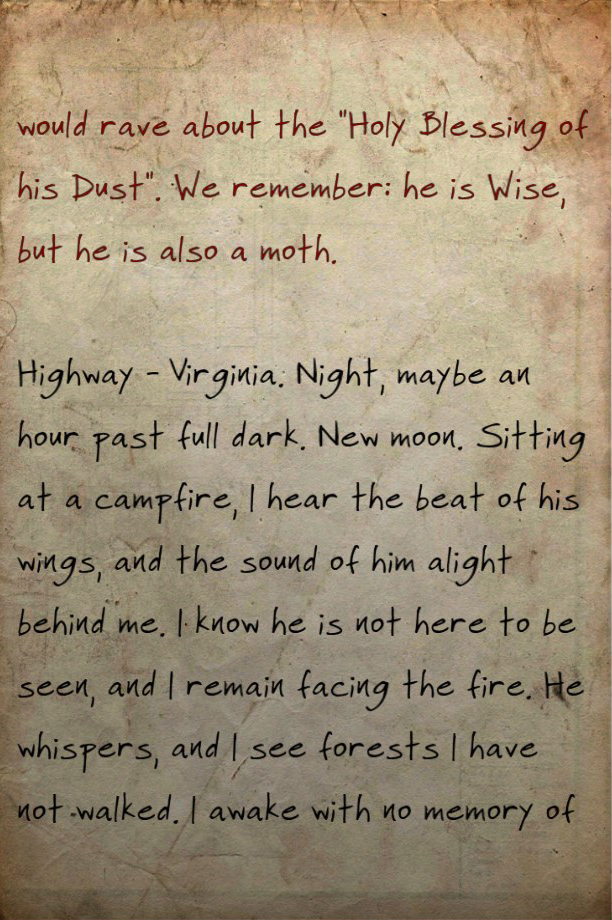 would rave about the "Holy Blessing of
his Dust". We remember: he is Wise,
but he is also a moth.
Highway - Virginia. Night, maybe an
hour past full dark. New moon. Sitting
at a campfire, I hear the beat of his
wings, and the sound of him alight
behind me. I know he is not here to be
seen, and I remain facing the fire. He
whispers, and I see forests I have
not walked. I awake with no memory of